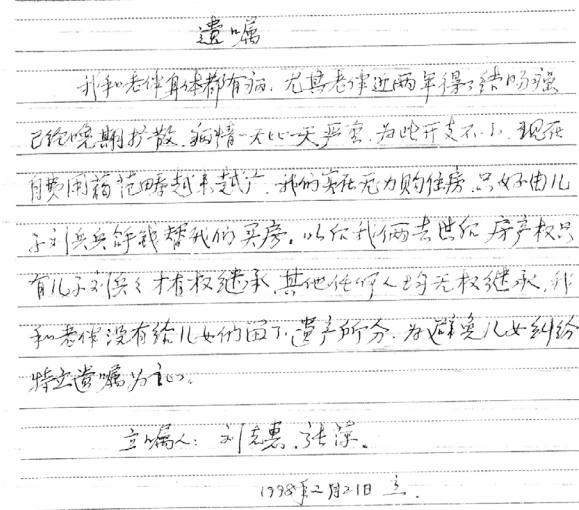 遗嘱
我和老伴身体都有病，尤其老伴近两年得了结肠癌
已经晚期扩散，病情一天比一天严重，为此开支不小，现在
自费用药范畴越来越广，我们实在无力购住房，只好由儿
子刘兵兵拿钱替我们买房。以后我俩去世后 房产权只
有儿子刘兵兵才有权继承，其他任何人均无权继承，我
和老伴没有给儿女们留下遗产所分，为避免儿女纠纷
特立遗嘱为证。
立嘱人：刘志惠、张萍。
1998年二月21日 立．